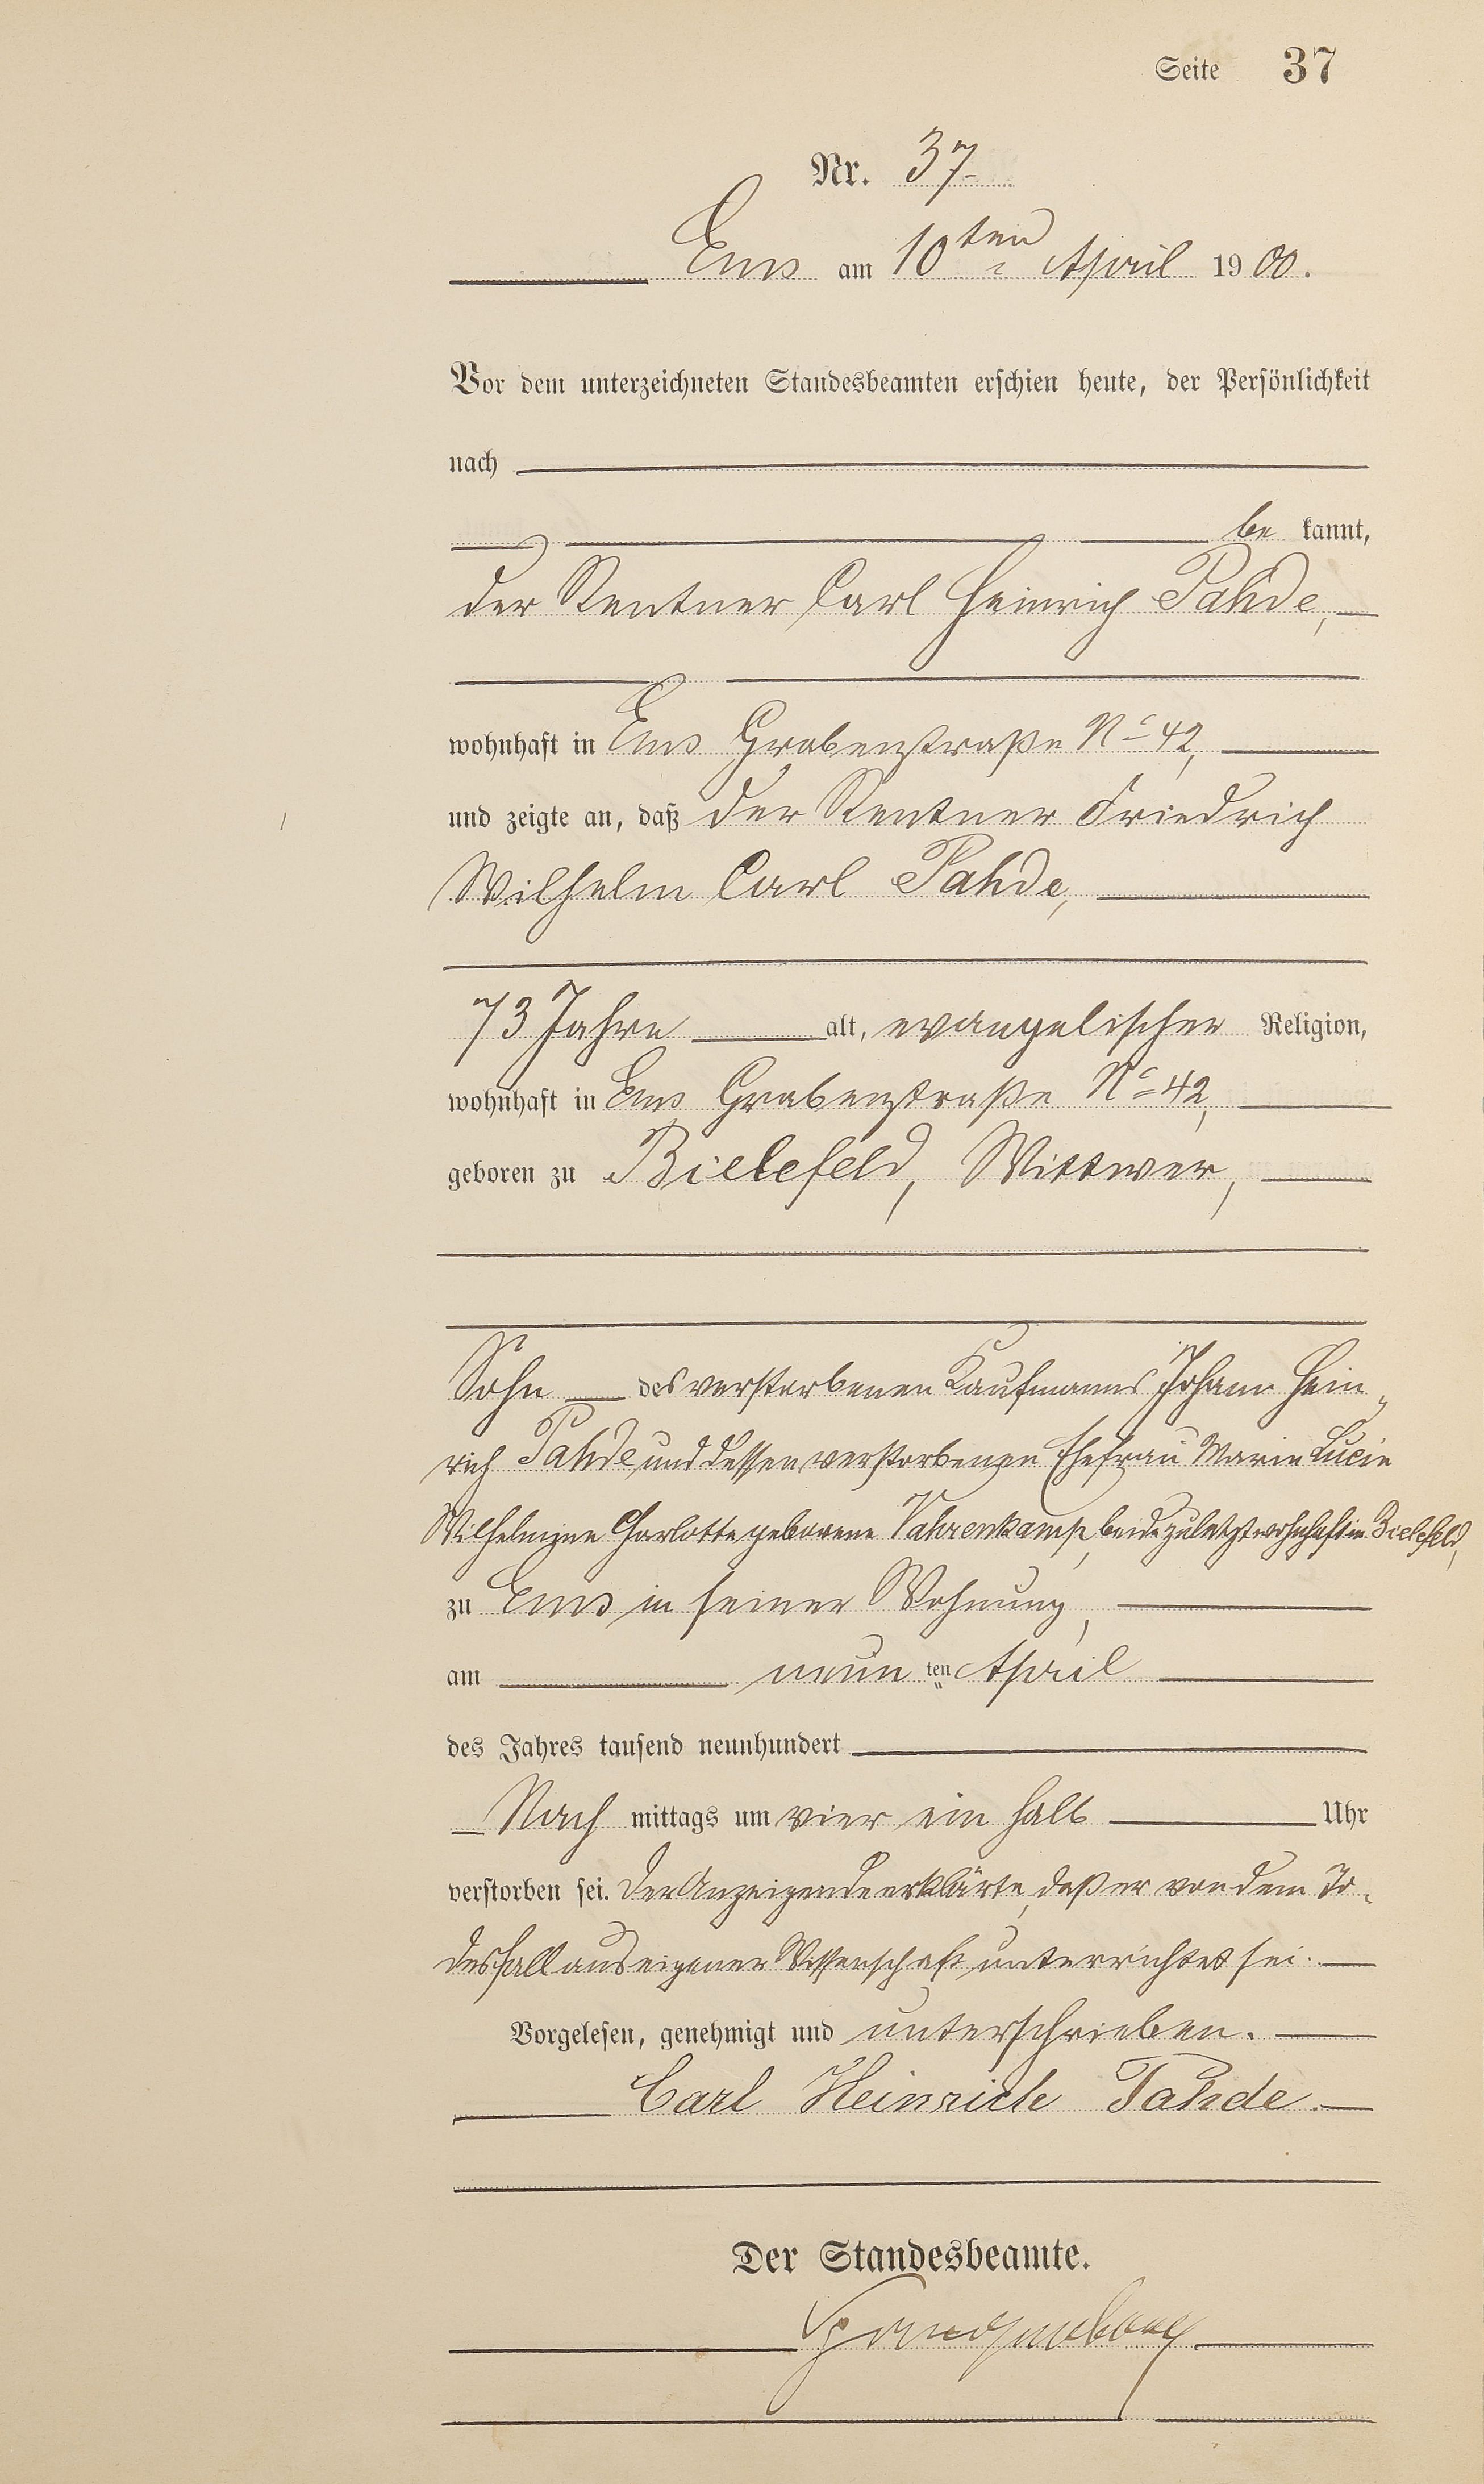 Seite 37
Nr. 37
Ems am 10ten April 1900.
Vor dem unterzeichneten Standesbeamten erschien heute, der Persönlichkeit
nach
be kannt,
der Rentner Carl Heinrich Pahde,
wohnhaft in Ems Grabenstraße No 42,
und zeigte an, daß der Rentner Friedrich
Wilhelm Carl Pahde,
73 Jahre alt, evangelischer Religion,
wohnhaft in Ems Grabenstraße No 42,
geboren zu Bielefeld, Wittwer,
Sohn des verstorbenen Kaufmanns Johann Hein-
rich Pahde und dessen verstorbenen Ehefrau Marie Lucie
Wilhelmine Charlotte geborene Vahrenkamp, beide zuletzt wohnhaft in Bielefeld,
zu Ems in seiner Wohnung,
am neun ten April
des Jahres tausend neunhundert
Nach mittags um vier ein halb Uhr
verstorben sei. Der Anzeigende erklärte, daß er von dem To-
desfall aus eigener Wissenschaft unterrichtet sei.
Vorgelesen, genehmigt und unterschrieben.
Carl Heinrich Pahde.
Der Standesbeamte.